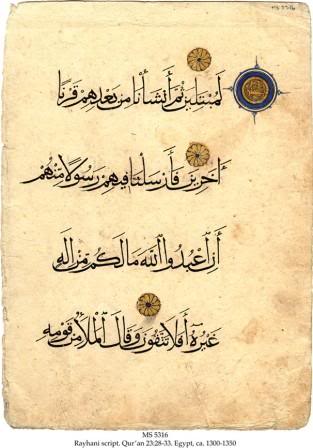 لَمُبْتَلِينَ ثُمَّ أَنْشَأْنَا مِنْ بَعْدِهِمْ قَرْنًا
آخَرِينَ فَأَرْسَلْنَا فِيهِمْ رَسُولًا مِنْهُمْ
أَنِ اعْبُدُوا اللَّهَ مَا لَكُمْ مِنْ إِلَهٍ
غَيْرُهُ أَفَلَا تَتَّقُونَ وَقَالَ الْمَلَأُ مِنْ قَوْمِهِ
MS 5316
Rayhani script. Qur'an 23:28-33. Egypt, ca. 1300-1350